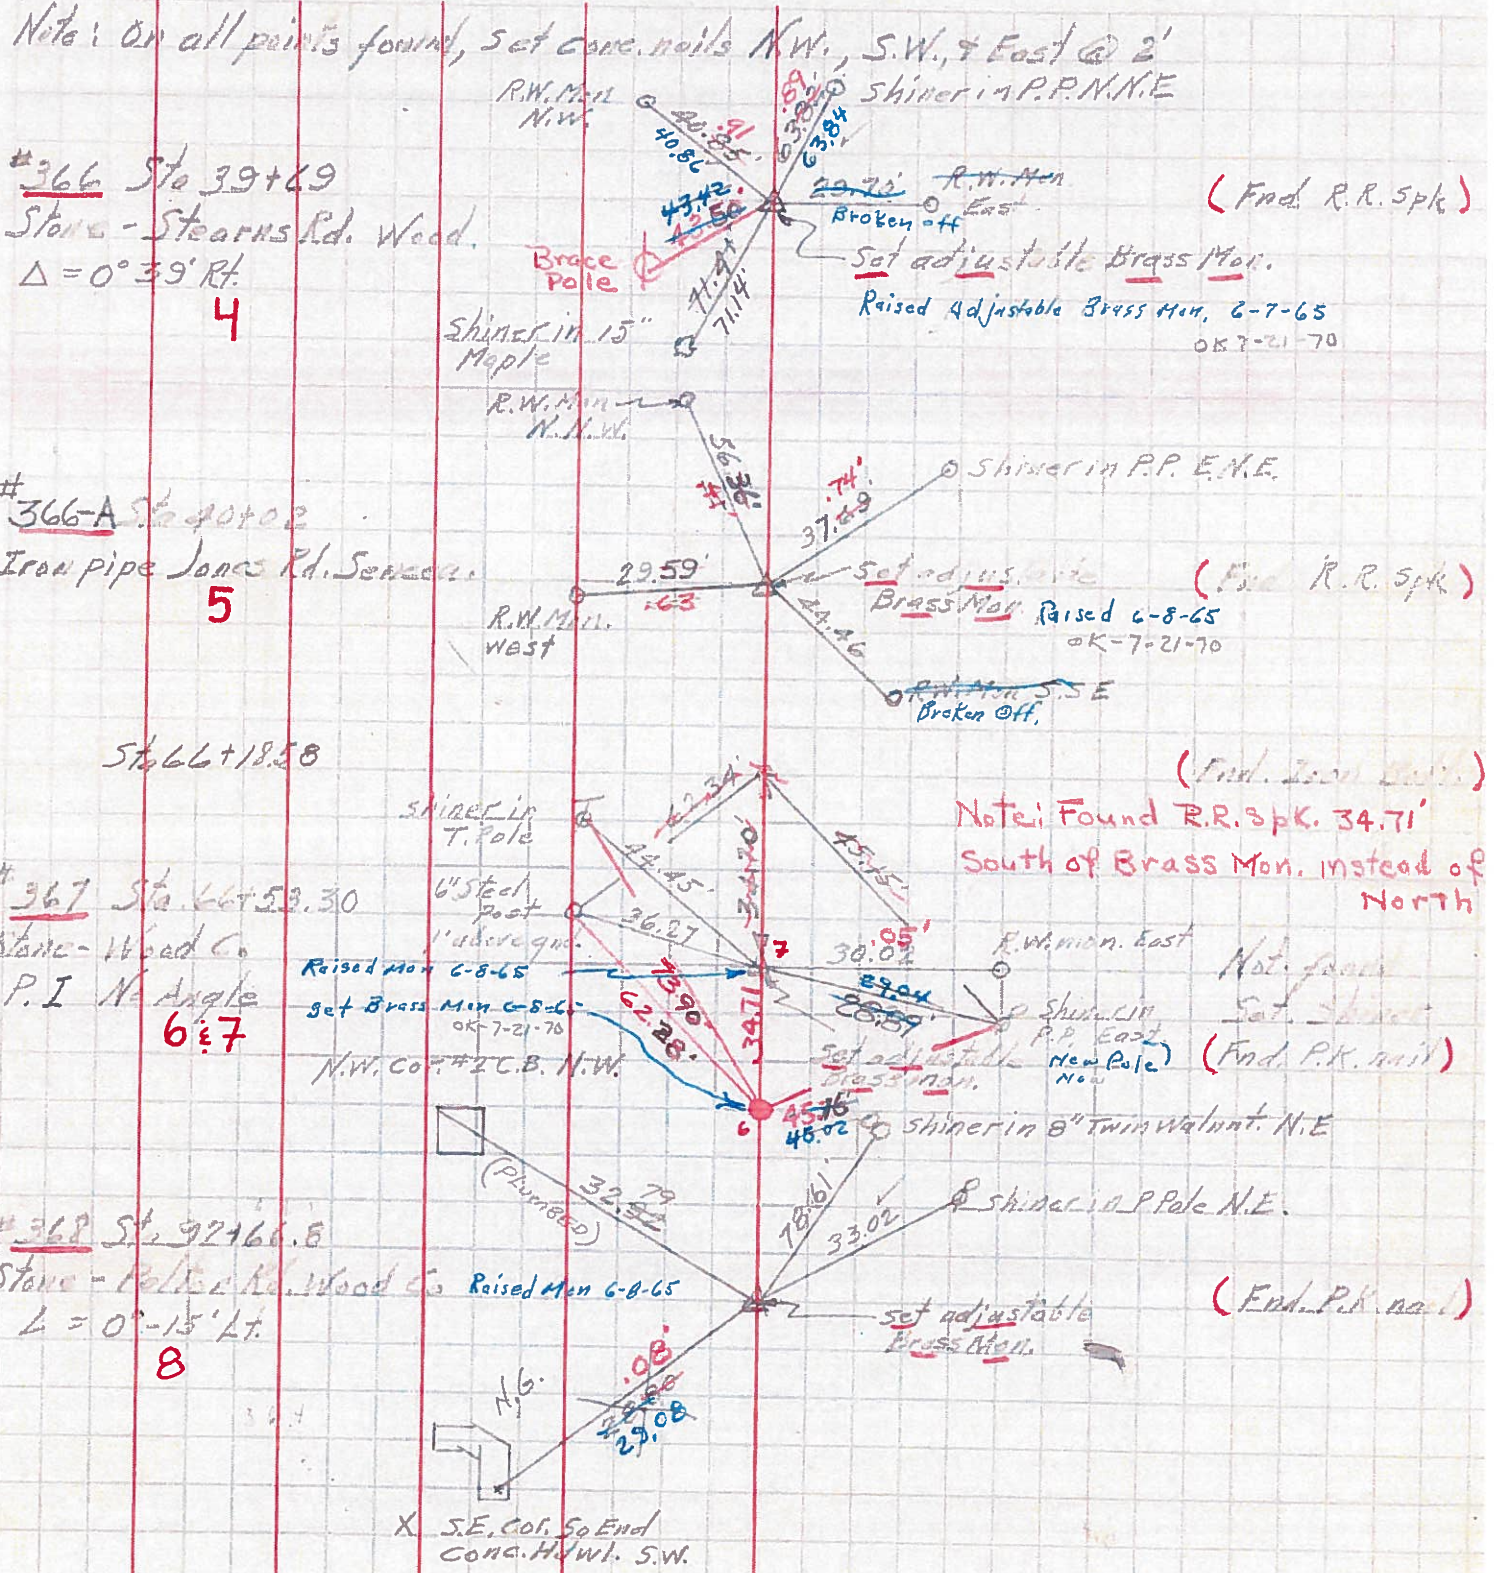 Note: On all points found, set conc. nails N.W., S.W., & East @ 2'
R.W. Mon
N.W.
40.85'
.91
40.86
.89
63.82'
63.84
Shiner in P.P. N.N.E
#366 Sta 39+69
Stone - Stearns Rd. Wood.
Δ = 0° 39' Rt.
4
43.42
43.50
Brace
Pole
29.70'
R.W. Mon
East
Broken off
(Fnd. R.R. Spk)
Set adjustable Brass Mon.
Raised Adjustable Brass Mon. 6-7-65
OK 7-21-70
71.14'
Shiner in 15"
Maple
R.W. Mon
N.N.W.
Shiner in P.P. E.N.E.
.74'
37.69
#366-A Sta 40+02
Iron pipe Jones Rd. Seneca.
5
29.59'
.63
R.W. Mon.
West
Set adjustable
Brass Mon.
Raised 6-8-65
OK-7-21-70
(Fnd R.R. Spk)
44.46
R.W. Mon S.S.E
Broken Off.
Sta 66+18.58
(Fnd. Iron)
Note: Found R.R. Spk. 34.71'
South of Brass Mon. instead of
North
Shiner in
T. Pole
62.34'
34.70'
45.15'
44.45'
6" Steel
Post
1' above gnd.
36.27
#367 Sta. 66+53.30
Stone - Wood Co
P.I No Angle
6 & 7
Raised Mon 6-8-65
set Brass Mon 6-8-65
OK-7-21-70
7
30.02
.05'
R.W. mon. East
Not found
Set Shiner
29.04
28.89'
Shiner in
P.P. East
New Pole
Now
(Fnd. P.K. nail)
43.90'
62.28'
34.71'
Set adjustable
Brass mon.
N.W. Cor. #2 C.B. N.W.
6
45.02
Shiner in 8" Twin Walnut. N.E
(PLUMBED)
32.82
79
78.61'
33.02
Shiner in P Pole N.E.
#368 Sta. 92+66.8
Stone - Pelton Rd. Wood Co
∠ = 0°-15' Lt.
8
Raised Mon 6-8-65
Set adjustable
Brass Mon.
(Fnd. P.K. nail)
.08'
29.08
N.G.
X S.E. Cor. So End
Conc. Hdwl. S.W.